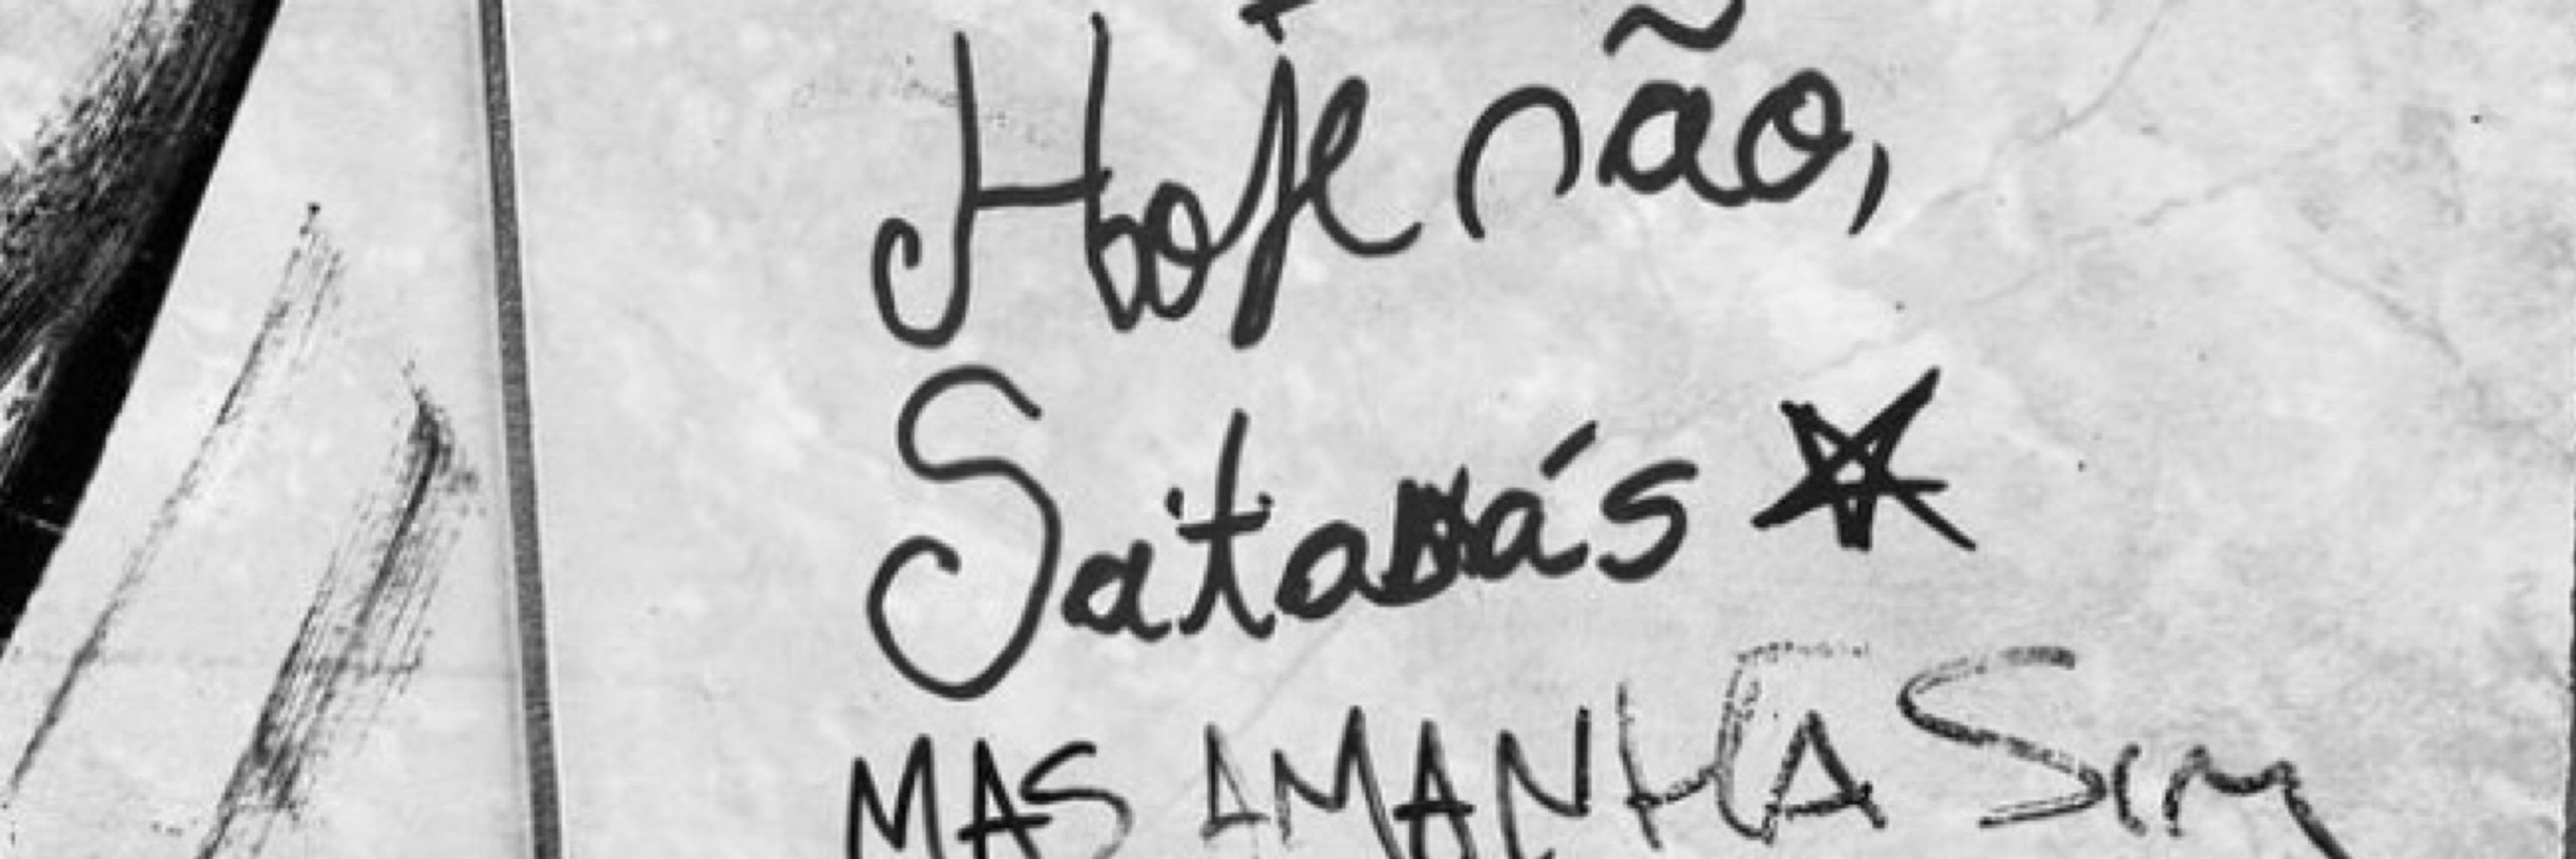 Hoje não,
Satanás
MAS AMANHA Sim